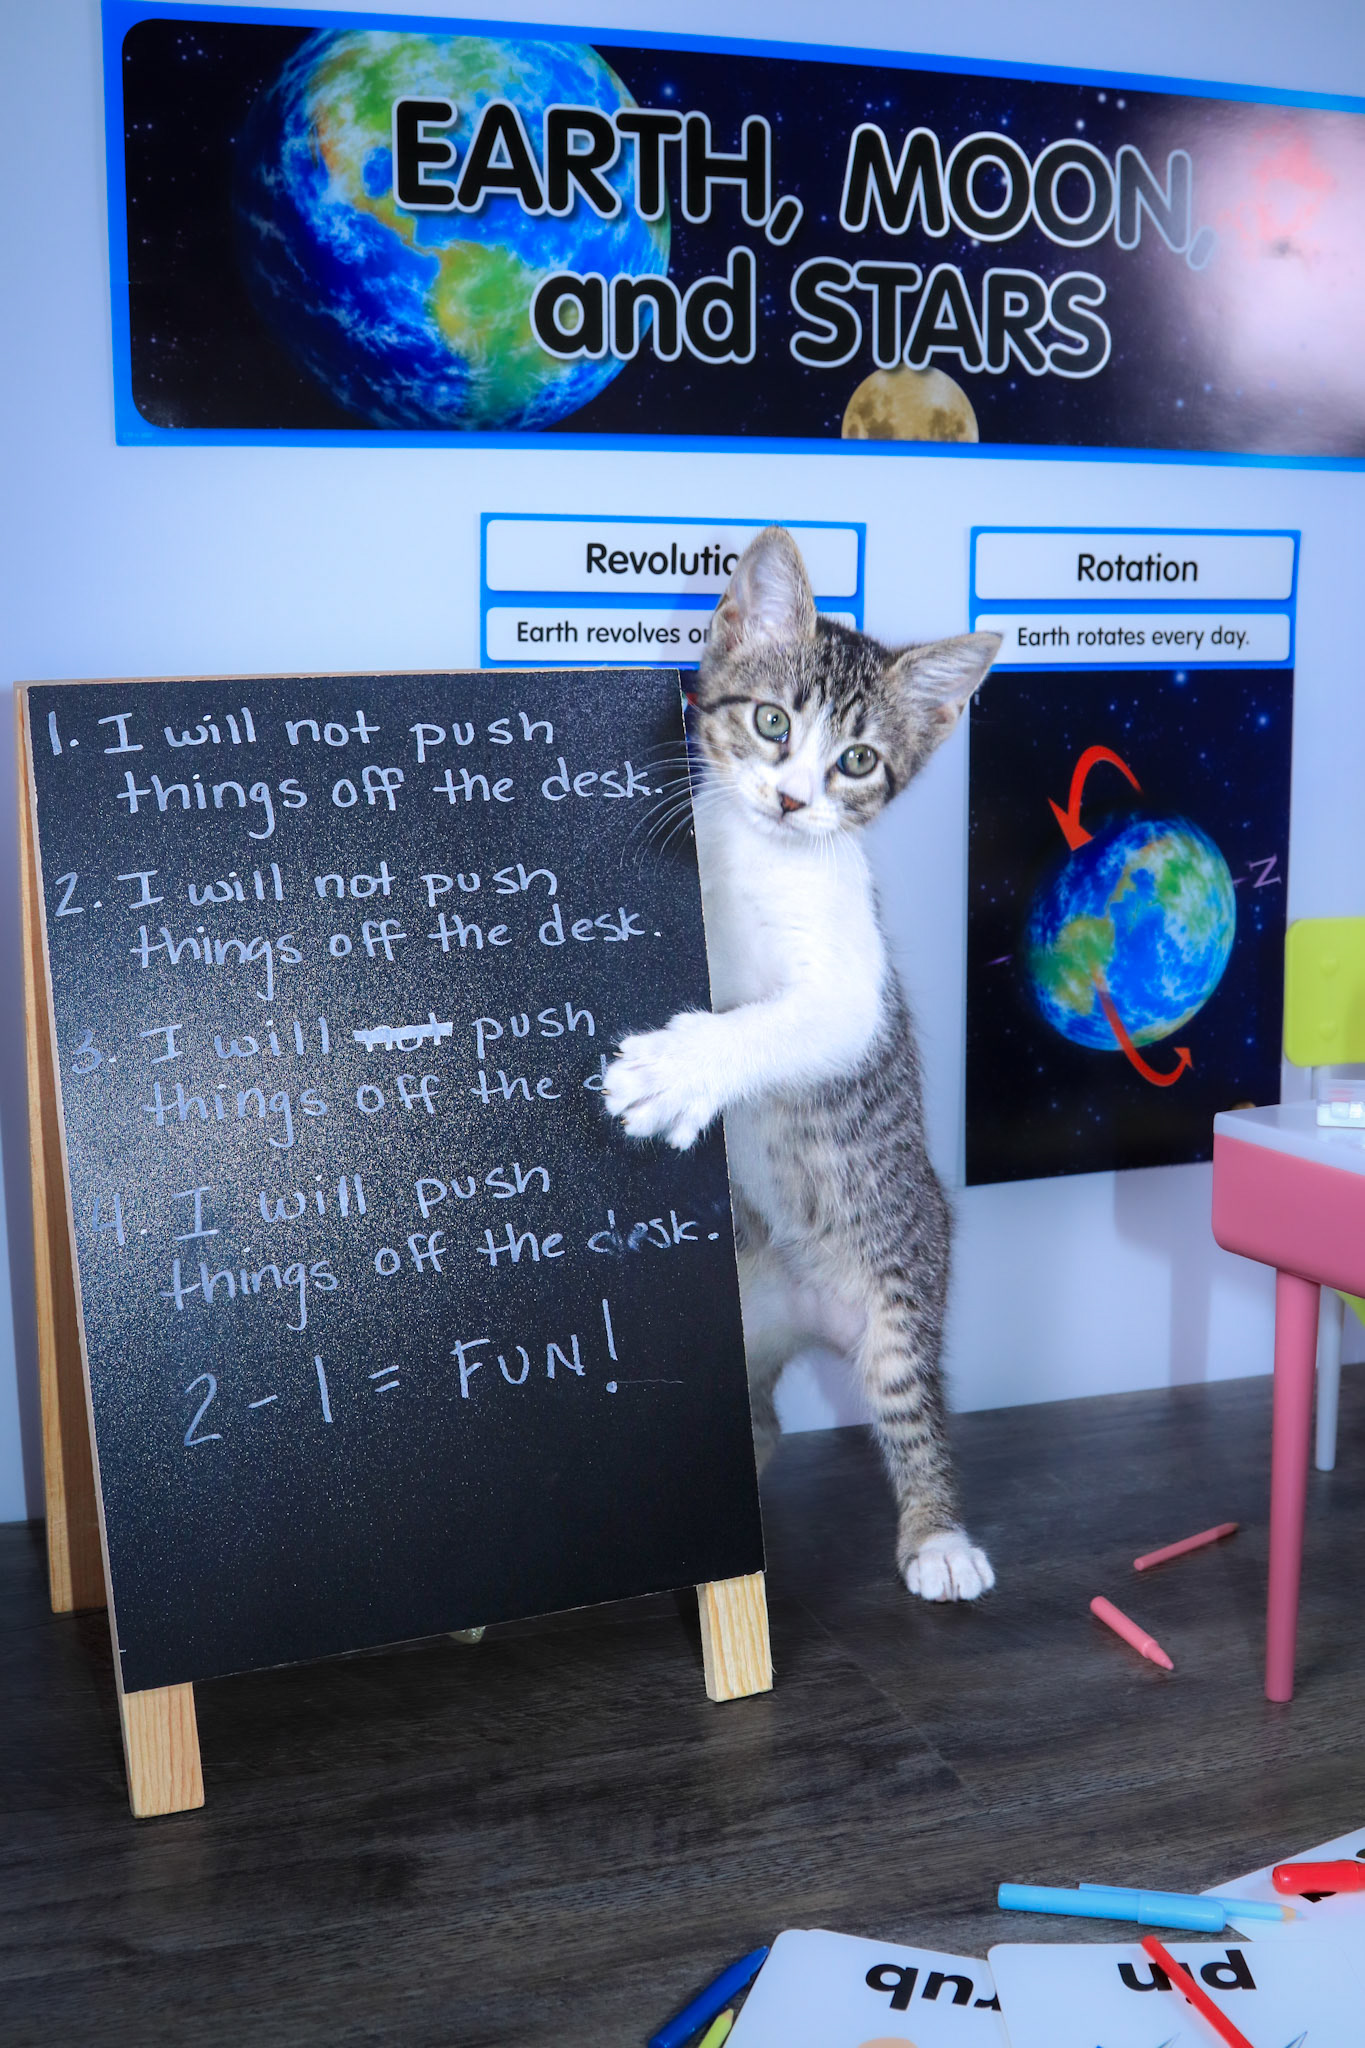 EARTH, MOON,
and STARS
Revolutio
Earth revolves
Rotation
Earth rotates every day.
N
1. I will not push
things off the desk.
2. I will not push
things off the desk.
3. I will not push
things off the d
4. I will push
things off the desk.
2 - 1 = FUN!
rub
pin